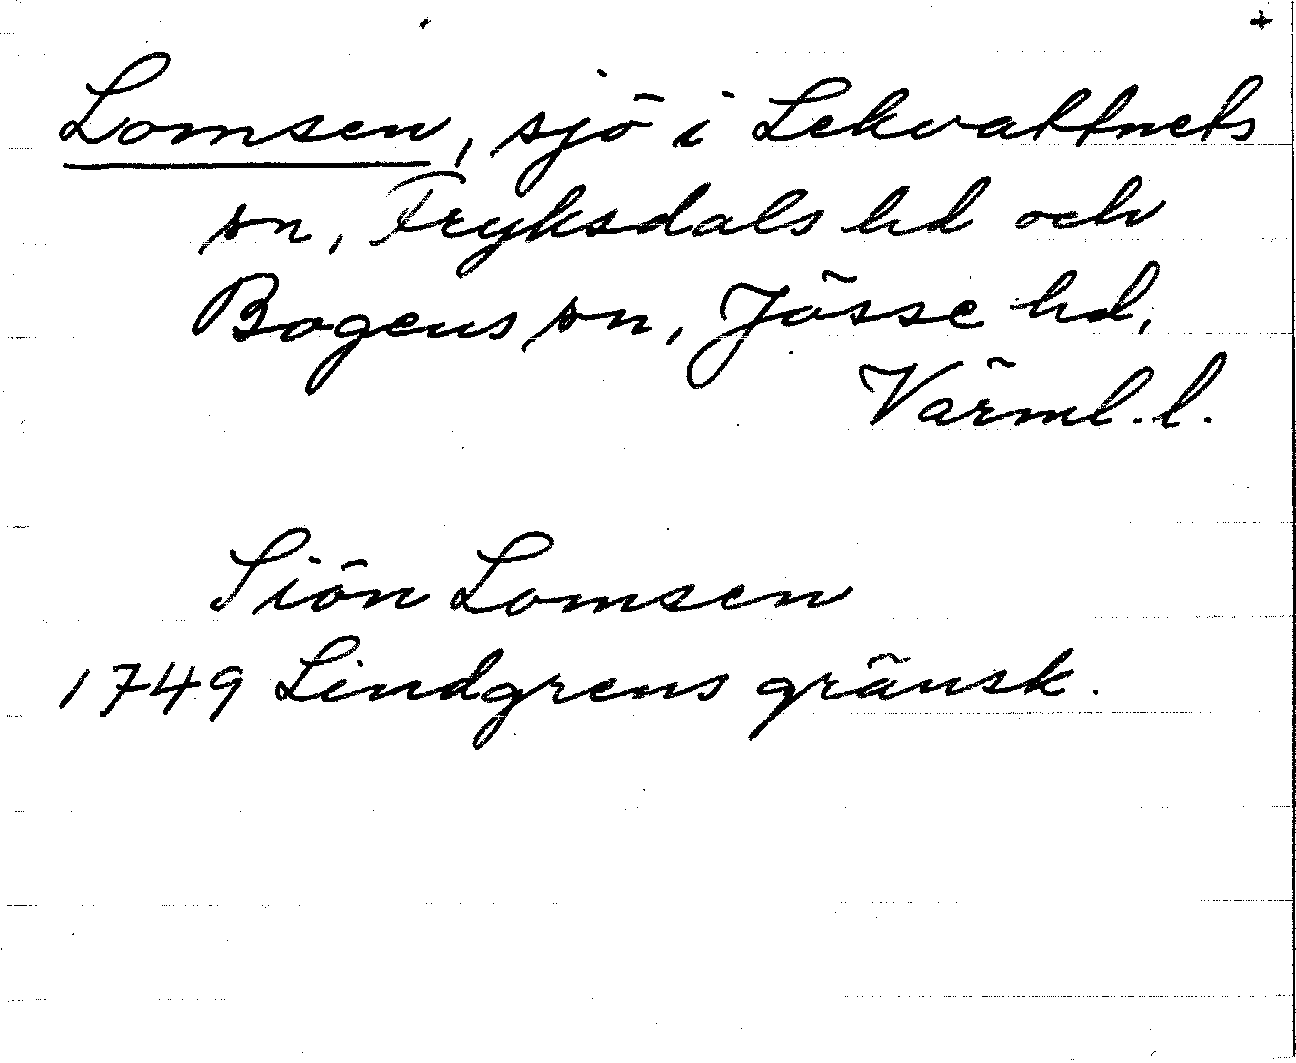 +
Lomsen, sjö i Lekvattnets
sn, Fryksdals hd och
Bogens sn, Jösse hd,
Värml. l.
Siön Lomsen
1749 Lindgrens gränsk.